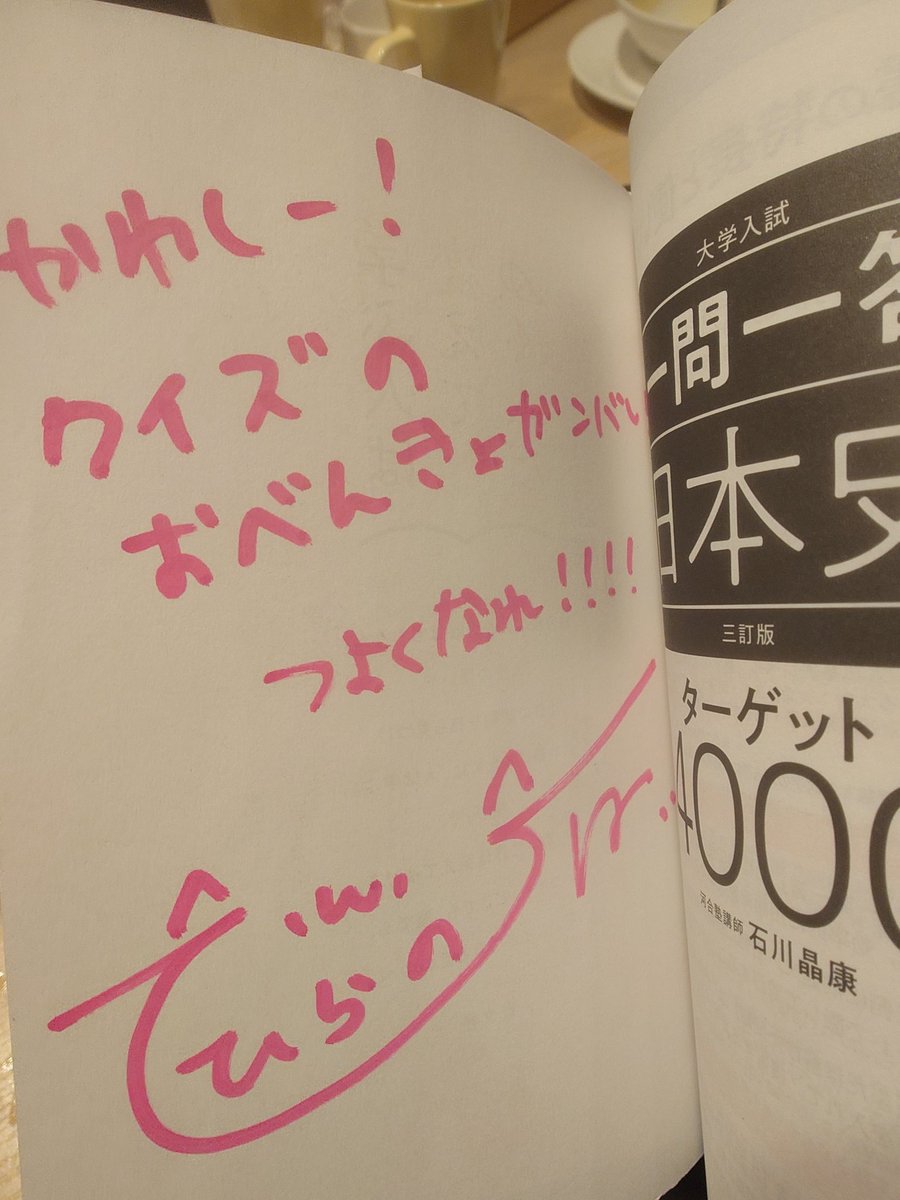 かわしー!
クイズの
おべんきょガンバレ
つよくなれ!!!!
.w.
ひらの
大学入試
一問一答
日本史
三訂版
ターゲット
4000
河合塾講師 石川晶康